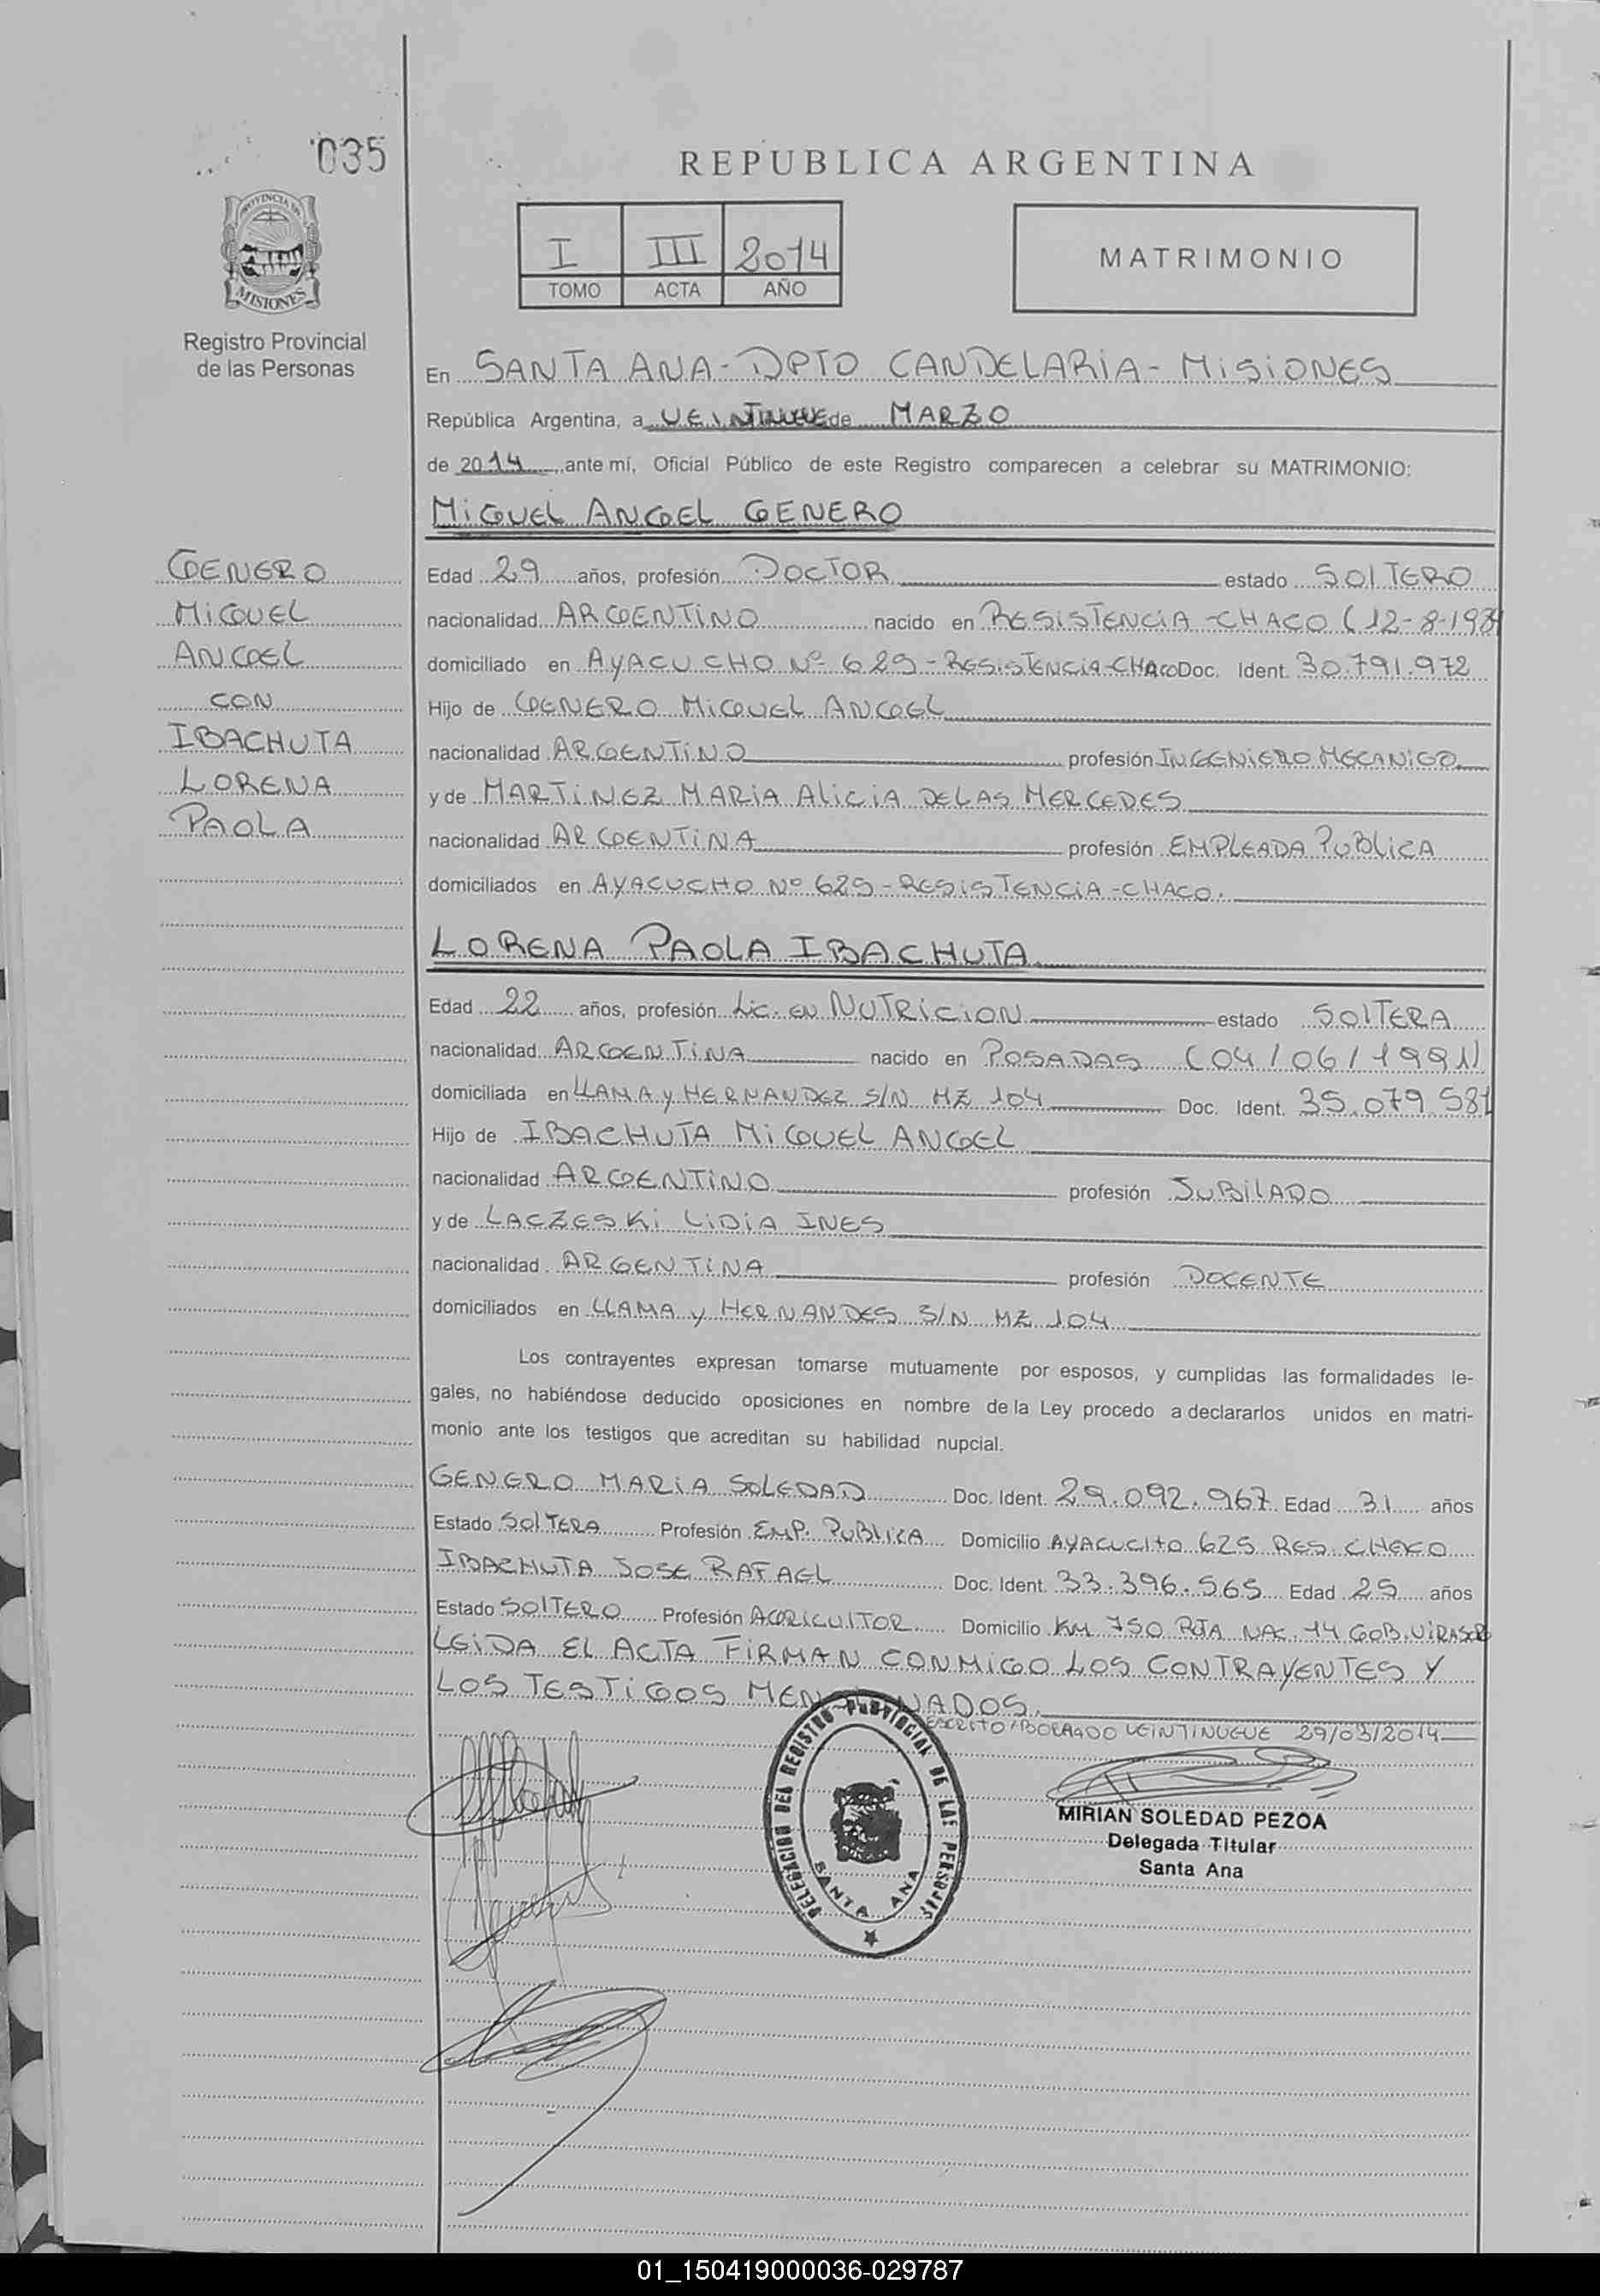 035
REPUBLICA ARGENTINA
PROVINCIA DE
MISIONES
I III 2014
TOMO ACTA AÑO
MATRIMONIO
Registro Provincial
de las Personas
En SANTA ANA - DPTO CANDELARIA - MISIONES
República Argentina, a VEINTINUEVE de MARZO
de 2014, ante mí, Oficial Público de este Registro comparecen a celebrar su MATRIMONIO:
MIGUEL ANGEL GENERO
GENERO
MIGUEL
ANGEL
CON
IBACHUTA
LORENA
PAOLA
Edad 29 años, profesión DOCTOR estado SOLTERO
nacionalidad ARGENTINO nacido en RESISTENCIA - CHACO (12-8-1984
domiciliado en AYACUCHO Nº 625 - RESISTENCIA - CHACO Doc. Ident. 30.791.972
Hijo de GENERO MIGUEL ANGEL
nacionalidad ARGENTINO profesión INGENIERO MECANICO
y de MARTINEZ MARIA ALICIA DE LAS MERCEDES
nacionalidad ARGENTINA profesión EMPLEADA PUBLICA
domiciliados en AYACUCHO Nº 625 - RESISTENCIA - CHACO.
LORENA PAOLA IBACHUTA
Edad 22 años, profesión LIC. EN NUTRICION estado SOLTERA
nacionalidad ARGENTINA nacido en POSADAS (04/06/1991)
domiciliada en LLAMA Y HERNANDEZ S/N MZ 104 Doc. Ident. 35.079.581
Hijo de IBACHUTA MIGUEL ANGEL
nacionalidad ARGENTINO profesión JUBILADO
y de LACZESKI LIDIA INES
nacionalidad ARGENTINA profesión DOCENTE
domiciliados en LLAMA Y HERNANDES S/N MZ 104
Los contrayentes expresan tomarse mutuamente por esposos, y cumplidas las formalidades le-
gales, no habiéndose deducido oposiciones en nombre de la Ley procedo a declararlos unidos en matri-
monio ante los testigos que acreditan su habilidad nupcial.
GENERO MARIA SOLEDAD Doc. Ident. 29.092.967 Edad 31 años
Estado SOLTERA Profesión EMP. PUBLICA Domicilio AYACUCHO 625 RES. CHACO
IBACHUTA JOSE RAFAEL Doc. Ident. 33.396.565 Edad 25 años
Estado SOLTERO Profesión AGRICULTOR Domicilio KM 750 RTA NAC. 14 GOB. VIRASORO
LEIDA EL ACTA FIRMAN CONMIGO LOS CONTRAYENTES Y
LOS TESTIGOS MENCIONADOS.
ESCRITO/BORRADO VEINTINUEVE 29/03/2014
DELEGACION DEL REGISTRO PROVINCIAL DE LAS PERSONAS
SANTA ANA
MIRIAN SOLEDAD PEZOA
Delegada Titular
Santa Ana
01_150419000036-029787